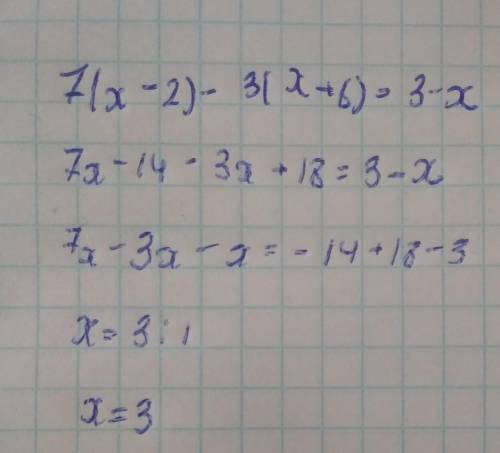 7(x - 2) - 3(x + 6) = 3 - x
7x - 14 - 3x + 18 = 3 - x
7x - 3x - x = - 14 + 18 - 3
x = 3 : 1
x = 3